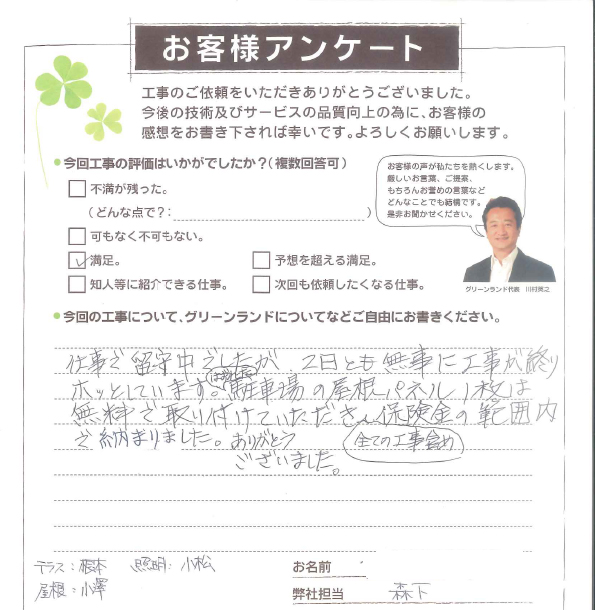 お客様アンケート
工事のご依頼をいただきありがとうございました。
今後の技術及びサービスの品質向上の為に、お客様の
感想をお書き下されば幸いです。よろしくお願いします。
今回工事の評価はいかがでしたか？(複数回答可)
不満が残った。
(どんな点で？: )
可もなく不可もない。
満足。
予想を超える満足。
知人等に紹介できる仕事。
次回も依頼したくなる仕事。
お客様の声が私たちを熱くします。
厳しいお言葉、ご提案、
もちろんお誉めの言葉など
どんなことでも結構です。
是非お聞かせください。
グリーンランド代表 川村英之
今回の工事について、グリーンランドについてなどご自由にお書きください。
仕事で留守中でしたが、2日とも無事に工事が終り
ホッとしています。駐車場の屋根パネル1枚は
無料で取り付けていただき、保険金の範囲内
で納まりました。ありがとう
全ての工事含め
ございました。
テラス：根本 照明：小松
屋根：小澤
お名前
弊社担当 森下